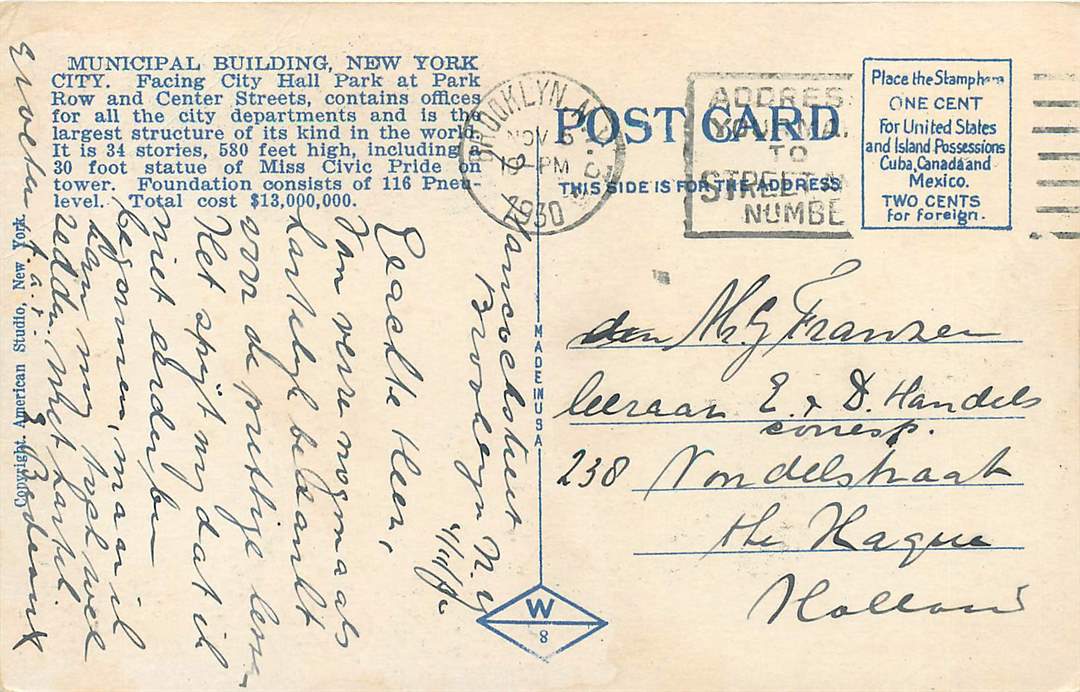 MUNICIPAL BUILDING, NEW YORK
CITY. Facing City Hall Park at Park
Row and Center Streets, contains offices
for all the city departments and is the
largest structure of its kind in the world.
It is 34 stories, 580 feet high, including a
30 foot statue of Miss Civic Pride on
tower. Foundation consists of 116 Pneu-
level. Total cost $13,000,000.
BROOKLYN, N.Y.
NOV 5
6 - PM
1930
POST CARD
THIS SIDE IS FOR THE ADDRESS
ADDRES
YOUR MA
TO
STREET
NUMBE
Place the Stamp here
ONE CENT
For United States
and Island Possessions
Cuba, Canada and
Mexico.
TWO CENTS
for foreign.
Brooklyn N.Y.
Geachte Heer,
Van verre nogmaals
hartelijk bedankt
voor de prettige lesse-
Het spijt mij dat ik
niet eerder ben
begonnen, maar ik
dan mij toch wel
redden. Met hartel.
groeten
den Mr G Franzen
leeraar E. & D. Handels
corresp.
238 Vondelstraat
the Hague
Holland
MADE IN USA
W
8
Copyright. American Studio, New York.